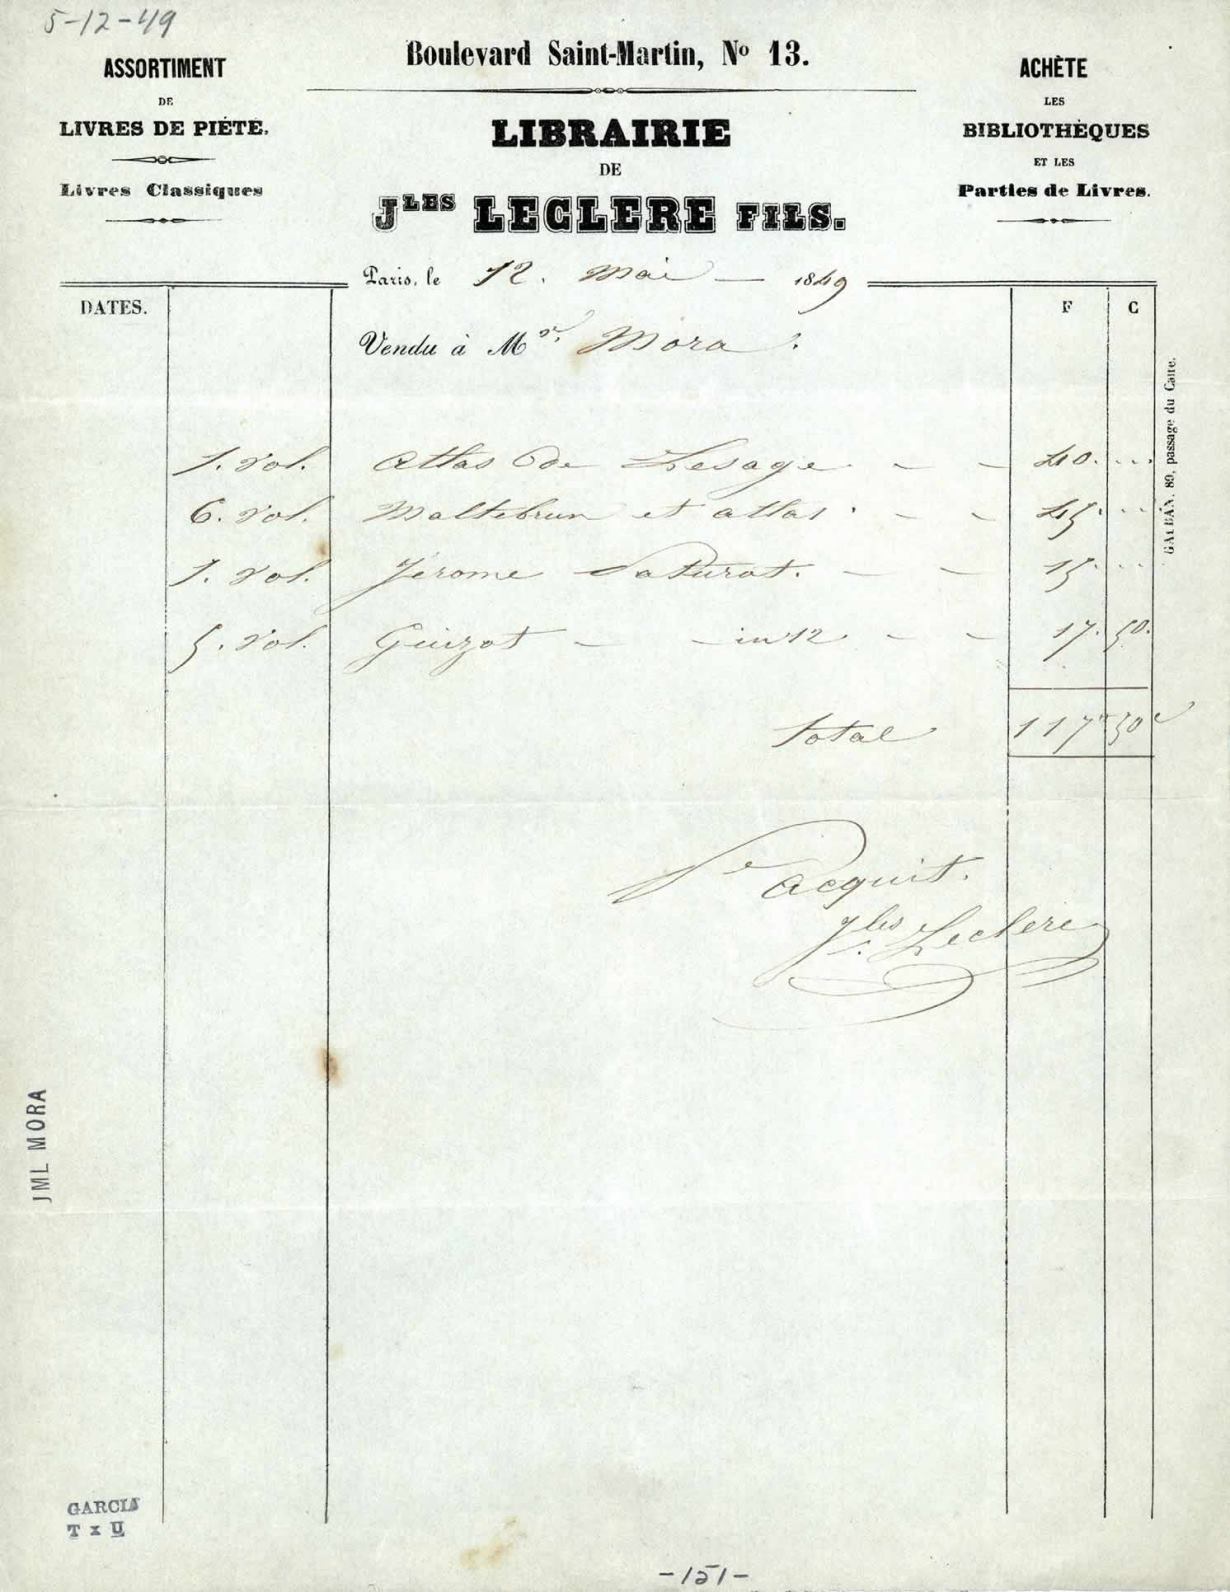 5-12-49
Boulevard Saint-Martin, No 13.
ASSORTIMENT
DE
LIVRES DE PIÉTÉ.
Livres Classiques
LIBRAIRIE
DE
Jles LECLERE FILS.
ACHÈTE
LES
BIBLIOTHÈQUES
ET LES
Parties de Livres.
Paris, le 12. Mai 1849
DATES. F C
Vendu à Mr. Mora.
1. vol. Atlas de Lesage 40.
6. vol. Maltebrun et atlas 45.
1. vol. Jerome Paturot. 15.
5. vol. Guizot in 12 17. 50.
total 117f 50c
Pr acquit.
Jles Leclere
GALBAN. 89, passage du Caire.
JML MORA
GARCIA
T x U
-151-